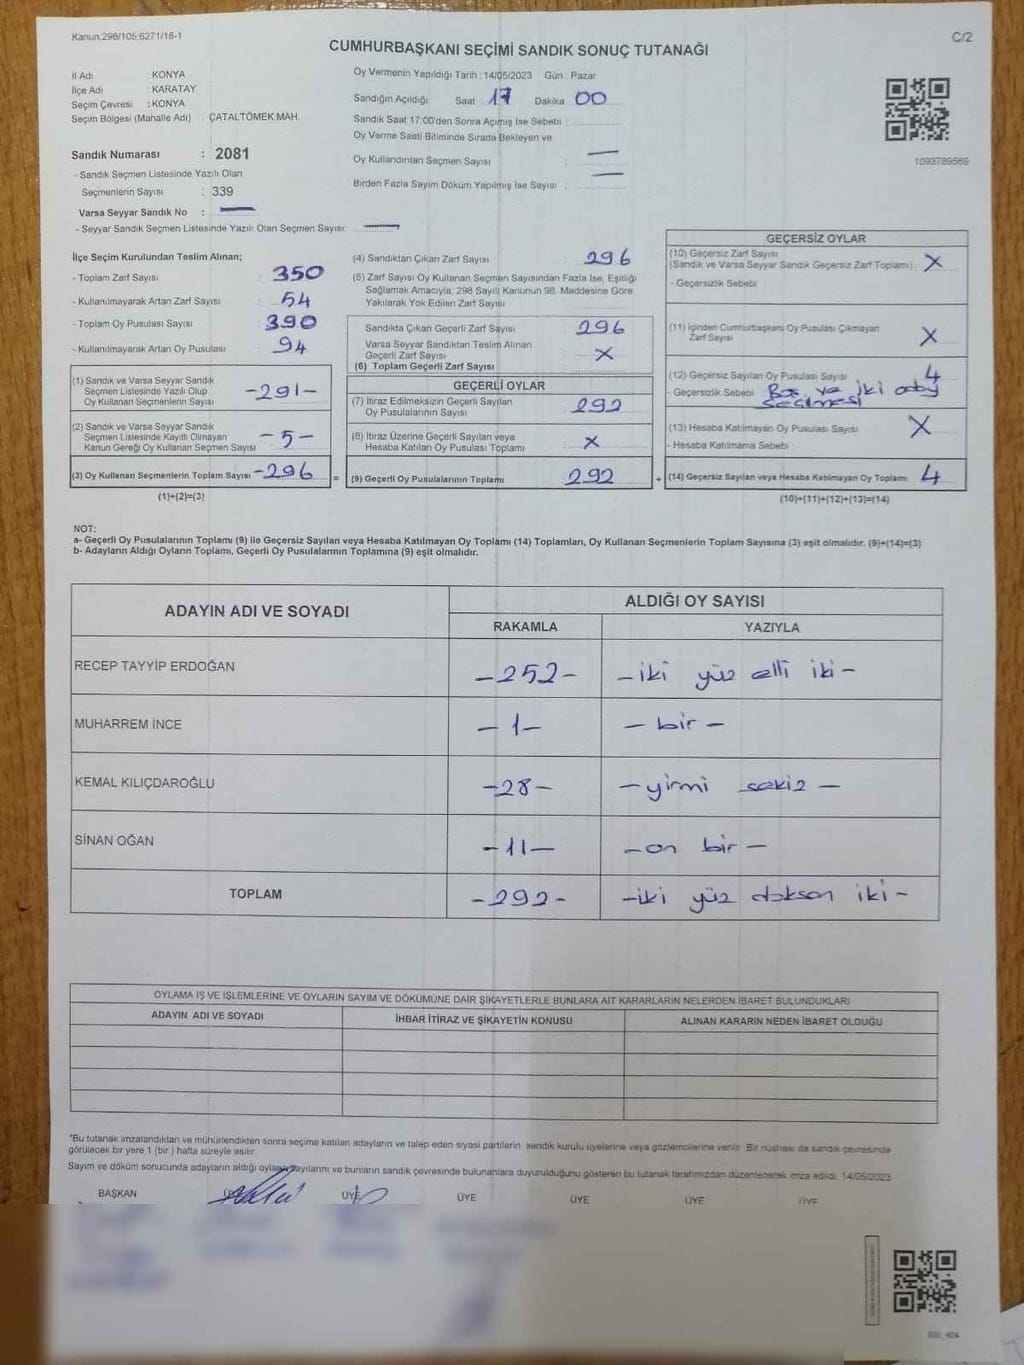 Kanun.298/105;6271/16-1
C/2
CUMHURBAŞKANI SEÇİMİ SANDIK SONUÇ TUTANAĞI
İl Adı : KONYA
İlçe Adı : KARATAY
Seçim Çevresi : KONYA
Seçim Bölgesi (Mahalle Adı) : ÇATALTÖMEK MAH.
Sandık Numarası : 2081
- Sandık Seçmen Listesinde Yazılı Olan
Seçmenlerin Sayısı : 339
Varsa Seyyar Sandık No : —
- Seyyar Sandık Seçmen Listesinde Yazılı Olan Seçmen Sayısı: —
Oy Vermenin Yapıldığı Tarih : 14/05/2023 Gün : Pazar
Sandığın Açıldığı Saat 17 Dakika 00
Sandık Saat 17:00'den Sonra Açımış İse Sebebi :
Oy Verme Saati Bitiminde Sırada Bekleyen ve
Oy Kullandırılan Seçmen Sayısı : —
Birden Fazla Sayım Döküm Yapılmış İse Sayısı : —
1093789569
İlçe Seçim Kurulundan Teslim Alınan;
- Toplam Zarf Sayısı : 350
- Kullanılmayarak Artan Zarf Sayısı : 54
- Toplam Oy Pusulası Sayısı : 390
- Kullanılmayarak Artan Oy Pusulası : 94
(1) Sandık ve Varsa Seyyar Sandık
Seçmen Listesinde Yazılı Olup
Oy Kullanan Seçmenlerin Sayısı -291-
(2) Sandık ve Varsa Seyyar Sandık
Seçmen Listesinde Kayıtlı Olmayan
Kanun Gereği Oy Kullanan Seçmen Sayısı -5-
(3) Oy Kullanan Seçmenlerin Toplam Sayısı -296
(1)+(2)=(3)
(4) Sandıktan Çıkan Zarf Sayısı 296
(5) Zarf Sayısı Oy Kullanan Seçmen Sayısından Fazla İse, Eşitliği
Sağlamak Amacıyla; 298 Sayılı Kanunun 98. Maddesine Göre
Yakılarak Yok Edilen Zarf Sayısı
Sandıkta Çıkan Geçerli Zarf Sayısı : 296
Varsa Seyyar Sandıktan Teslim Alınan
Geçerli Zarf Sayısı : X
(6) Toplam Geçerli Zarf Sayısı
GEÇERLİ OYLAR
(7) İtiraz Edilmeksizin Geçerli Sayılan
Oy Pusulalarının Sayısı : 292
(8) İtiraz Üzerine Geçerli Sayılan veya
Hesaba Katılan Oy Pusulası Toplamı : X
= (9) Geçerli Oy Pusulalarının Toplamı 292
GEÇERSİZ OYLAR
(10) Geçersiz Zarf Sayısı
(Sandık ve Varsa Seyyar Sandık Geçersiz Zarf Toplamı) : X
- Geçersizlik Sebebi :
(11) İçinden Cumhurbaşkanı Oy Pusulası Çıkmayan
Zarf Sayısı : X
(12) Geçersiz Sayılan Oy Pusulası Sayısı : 4
- Geçersizlik Sebebi : Boş ve iki aday
seçilmesi
(13) Hesaba Katılmayan Oy Pusulası Sayısı : X
- Hesaba Katılmama Sebebi :
+ (14) Geçersiz Sayılan veya Hesaba Katılmayan Oy Toplamı 4
(10)+(11)+(12)+(13)=(14)
NOT:
a- Geçerli Oy Pusulalarının Toplamı (9) ile Geçersiz Sayılan veya Hesaba Katılmayan Oy Toplamı (14) Toplamları, Oy Kullanan Seçmenlerin Toplam Sayısına (3) eşit olmalıdır. (9)+(14)=(3)
b- Adayların Aldığı Oyların Toplamı, Geçerli Oy Pusulalarının Toplamına (9) eşit olmalıdır.
ADAYIN ADI VE SOYADI
ALDIĞI OY SAYISI
RAKAMLA YAZIYLA
RECEP TAYYİP ERDOĞAN -252- -iki yüz elli iki-
MUHARREM İNCE -1- -bir-
KEMAL KILIÇDAROĞLU -28- -yirmi sekiz-
SİNAN OĞAN -11- -on bir-
TOPLAM -292- -iki yüz doksan iki-
OYLAMA İŞ VE İŞLEMLERİNE VE OYLARIN SAYIM VE DÖKÜMÜNE DAİR ŞİKAYETLERLE BUNLARA AİT KARARLARIN NELERDEN İBARET BULUNDUKLARI
ADAYIN ADI VE SOYADI İHBAR İTİRAZ VE ŞİKAYETİN KONUSU ALINAN KARARIN NEDEN İBARET OLDUĞU
*Bu tutanak imzalandıktan ve mühürlendikten sonra seçime katılan adayların ve talep eden siyasi partilerin sandık kurulu üyelerine veya gözlemcilerine verilir. Bir nüshası da sandık çevresinde
görülecek bir yere 1 (bir) hafta süreyle asılır.
Sayım ve döküm sonucunda adayların aldığı oyların sayılarını ve bunların sandık çevresinde bulunanlara duyurulduğunu gösteren bu tutanak tarafımızdan düzenlenerek imza edildi. 14/05/2023
BAŞKAN ÜYE ÜYE ÜYE ÜYE ÜYE ÜYE